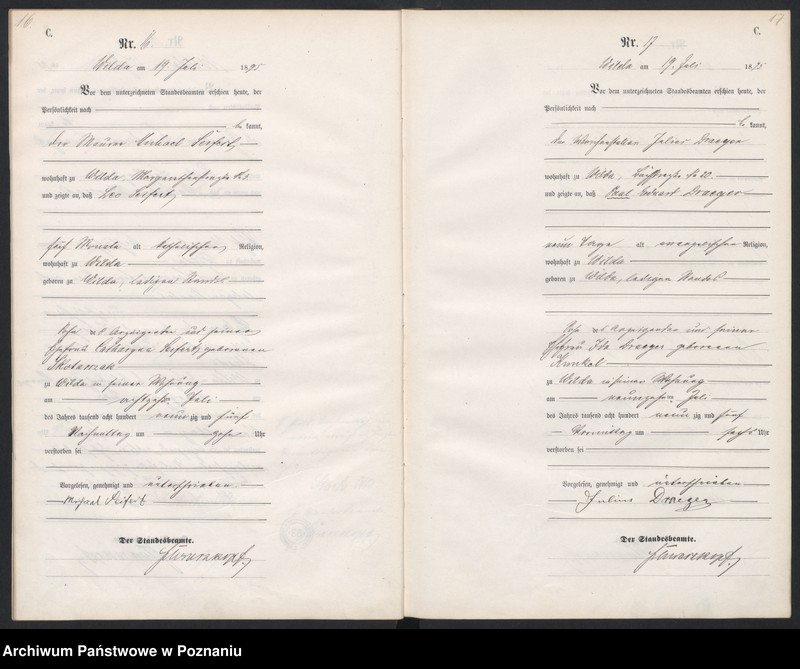 16.
C.
Nr. 16.
Wilda am 19. Juli 1895
Vor dem unterzeichneten Standesbeamten erschien heute, der
Persönlichkeit nach
kannt,
der Maurer Michael Seifert,
wohnhaft zu Wilda,
und zeigte an, daß Leo Seifert,
fünf Monate alt katholischer Religion,
wohnhaft zu Wilda
geboren zu Wilda, ledigen Standes
Sohn des Anzeigenden und seiner
Ehefrau Seifert, geborenen
zu Wilda in seiner Wohnung
am achtzehnten Juli
des Jahres tausend acht hundert neun zig und fünf
Nachmittag um Uhr
verstorben sei
Vorgelesen, genehmigt und unterschrieben
Michael Seifert
Der Standesbeamte.
Schwarzkopf
17
C.
Nr. 17
Wilda am 19. Juli 1895
Vor dem unterzeichneten Standesbeamten erschien heute, der
Persönlichkeit nach
be kannt,
der Julius Draeger
wohnhaft zu Wilda,
und zeigte an, daß Draeger
neun Tage alt evangelischer Religion,
wohnhaft zu Wilda
geboren zu Wilda, ledigen Standes
Sohn des Anzeigenden und seiner
Ehefrau Ida Draeger geborenen
Kunkel
zu Wilda in seiner Wohnung
am neunzehnten Juli
des Jahres tausend acht hundert neun zig und fünf
Vormittag um sechs Uhr
verstorben sei
Vorgelesen, genehmigt und unterschrieben
Julius Draeger
Der Standesbeamte.
Schwarzkopf
Archiwum Państwowe w Poznaniu